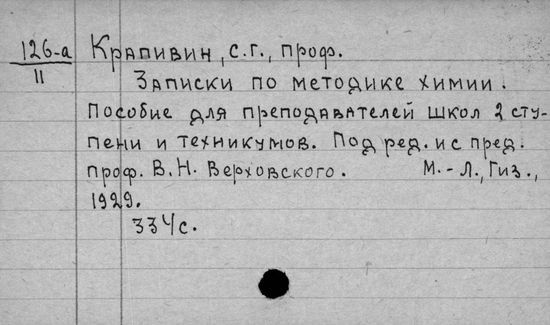 126-а
II
Крапивин, С.Г., проф.
Записки по методике химии.
Пособие для преподавателей школ 2 сту-
пени и техникумов. Под ред. и с пред.
проф. В.Н. Верховского. М.-Л., Гиз.,
1929.
334с.